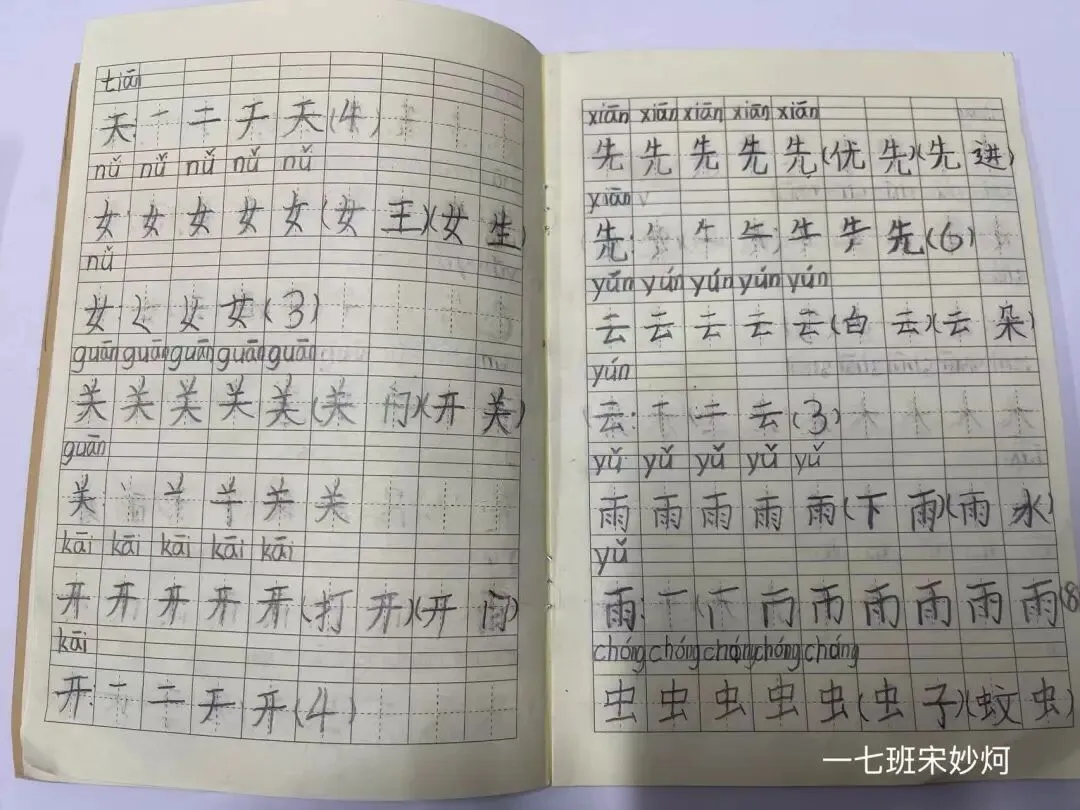 tiān
天 一 二 于 天 (4)
nǚ nǚ nǚ nǚ nǚ
女 女 女 女 女 (女 王)(女 生)
nǚ
女: 𡿨 女 女 (3)
guān guān guān guān guān
关 关 关 关 关 (关 门)(开 关)
guān
关: 丷 关
kāi kāi kāi kāi kāi
开 开 开 开 开 (打 开)(开 门)
kāi
开: 一 二 开 开 (4)
xiān xiān xiān xiān xiān
先 先 先 先 先 (优 先)(先 进)
xiān
先: 先 (6)
yún yún yún yún yún
云 云 云 云 云 (白 云)(云 朵)
yún
云: 一 二 云 (3)
yǔ yǔ yǔ yǔ yǔ
雨 雨 雨 雨 雨 (下 雨)(雨 水)
yǔ
雨: 一 雨 雨 雨 雨 (8
chóng chóng chóng chóng chóng
虫 虫 虫 虫 虫 (虫 子)(蚊 虫)
一七班宋妙炣